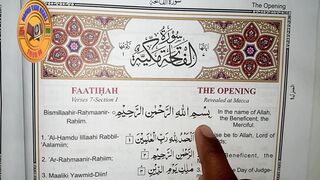 سورة الفاتحة
The Opening
سُورَةُ
الْفَاتِحَةِ مَكِّيَّةٌ
FAATIḤAH
Verses 7-Section 1
THE OPENING
Revealed at Mecca
Bismillaahir-Rahmaanir-
Rahïm.
بِسْمِ اللهِ الرَّحْمٰنِ الرَّحِيْمِ
In the name of Allah,
the Beneficent, the
Merciful.
1. 'Al-Ḥamdu lillaahi Rabbil-
Aalamïin;
اَلْحَمْدُ لِلّٰهِ رَبِّ الْعٰلَمِيْنَ
be to Allah, Lord of
2. 'Ar-Raḥmaanir-Raḥïim;
الرَّحْمٰنِ الرَّحِيْمِ
3. Maaliki Yawmid-Diin!
مٰلِكِ يَوْمِ الدِّيْنِ
Day of Judge-